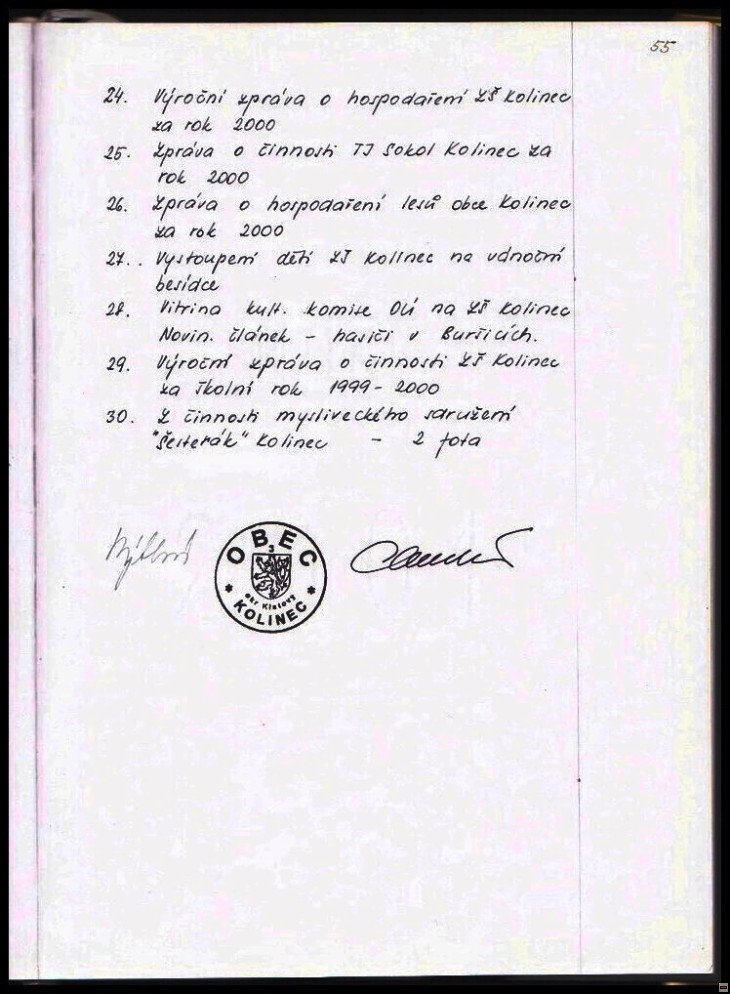 55
24. Výroční zpráva o hospodaření ZŠ Kolinec
za rok 2000
25. Zpráva o činnosti TJ Sokol Kolinec za
rok 2000
26. Zpráva o hospodaření lesů obce Kolinec
za rok 2000
27.. Vystoupení dětí ZŠ Kolinec na vánoční
besídce
28. Vitrina kult. komise OÚ na ZŠ Kolinec
Novin. článek - hasiči v Buršicích.
29. Výroční zpráva o činnosti ZŠ Kolinec
za školní rok 1999 - 2000
30. Z činnosti mysliveckého sdružení
"Šesterák" Kolinec - 2 fota
OBEC
3
okr Klatovy
* KOLINEC *